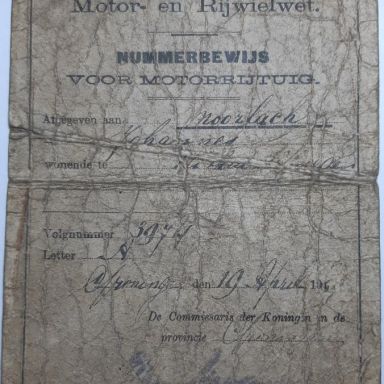 Motor- en Rijwielwet.
NUMMERBEWIJS
VOOR MOTORRIJTUIG.
Afgegeven aan Noorlach
Johannes
wonende te
Volgnummer 3974
Letter A
Groningen den 19 April 19
De Commissaris der Koningin in de
provincie Groningen